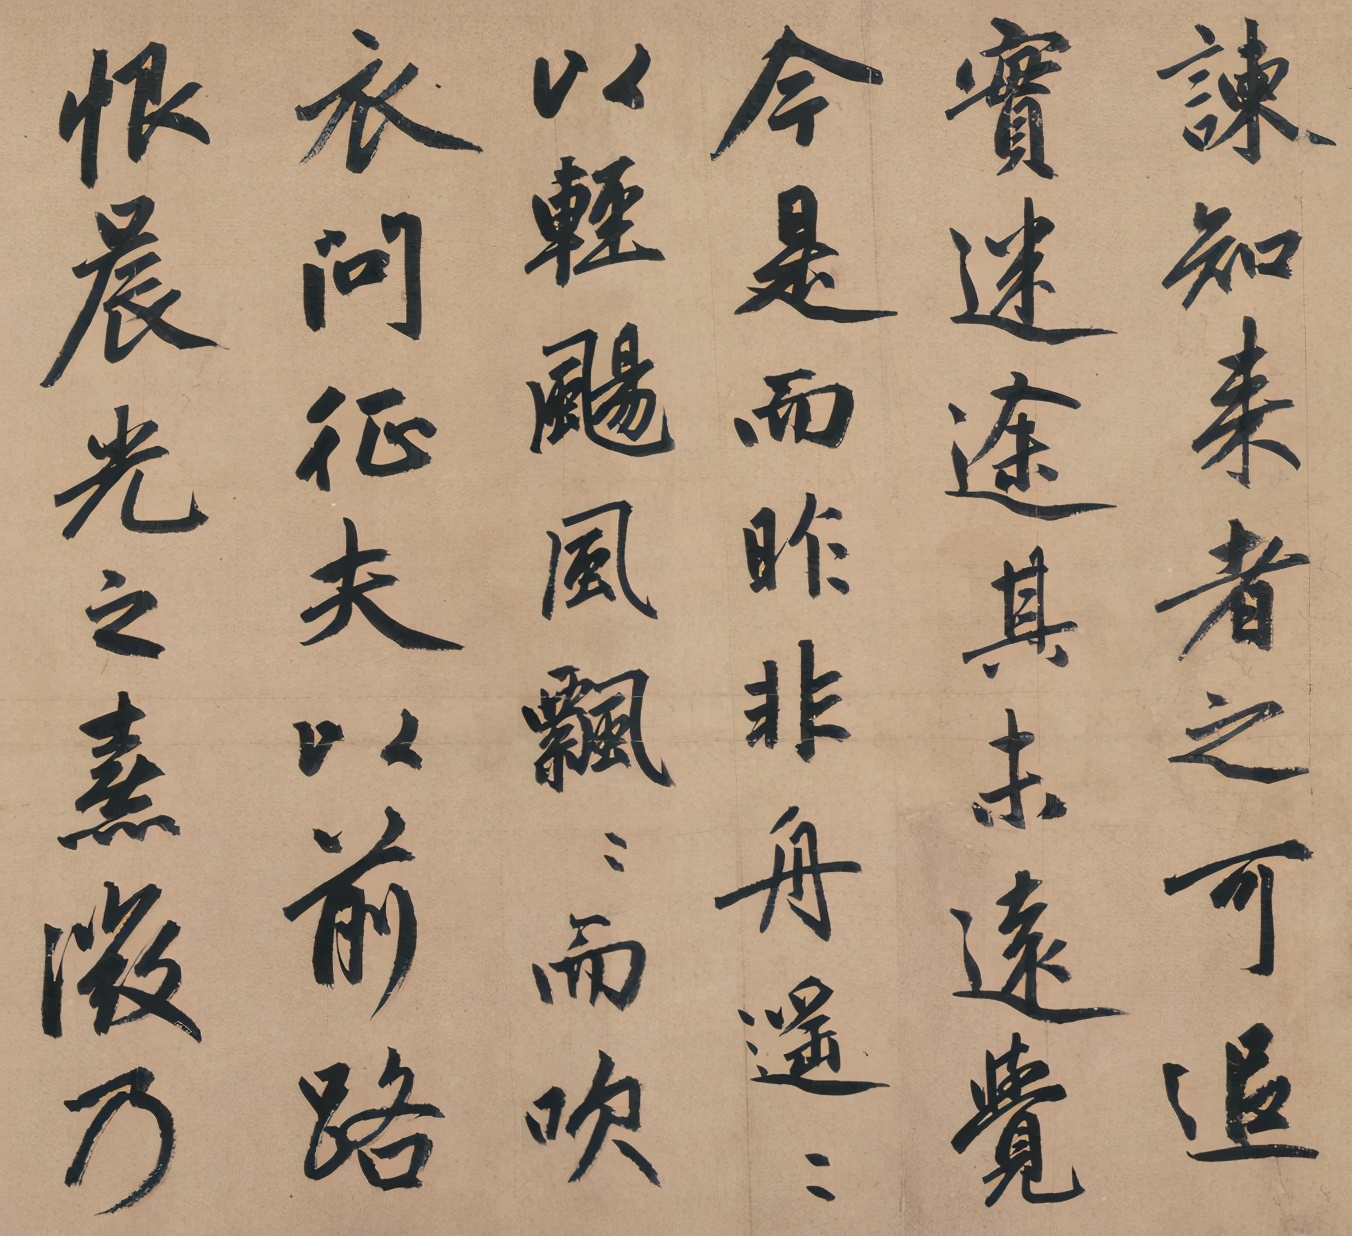 諫知来者之可追
實迷途其未遠覺
今是而昨非舟遥〻
以輕颺風飄〻而吹
衣問征夫以前路
恨晨光之熹微乃